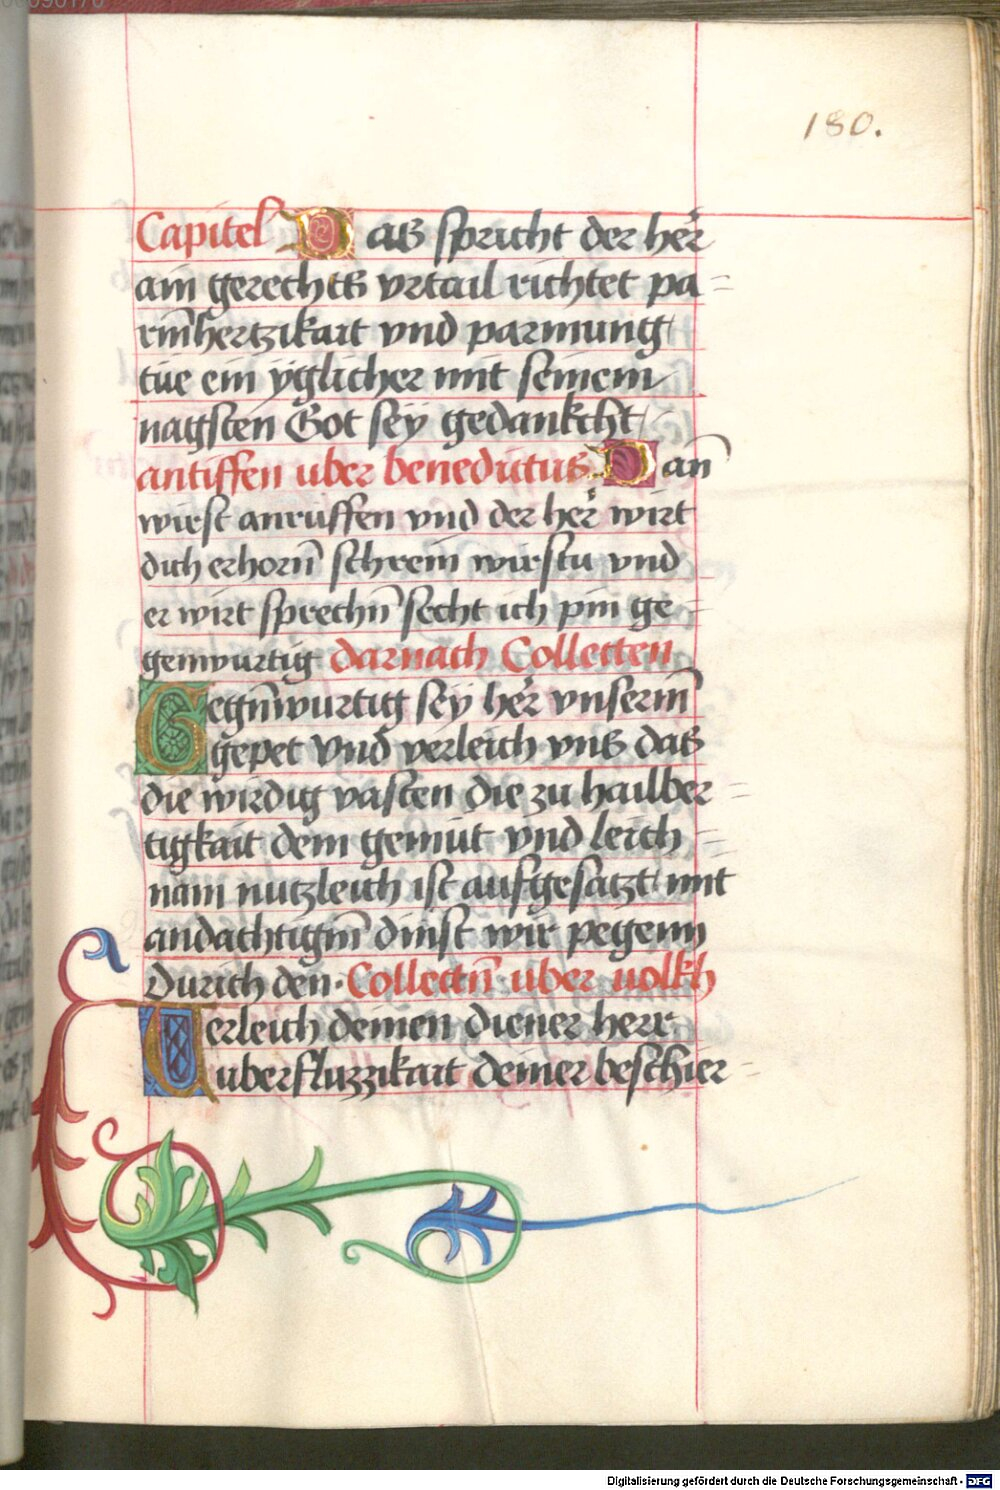 180.
Capitel Das spricht der her
ain gerechts vrtail richtet pa=
rmhertzikait vnd parmung
tüe ein yglicher mit seinem
nagsten Got sey gedankcht
antiffen uber benedictus Dan̄
wirst anruffen vnd der her wirt
dich erhorn̄ schrein wirstu vnd
er wirt sprechn̄ secht ich pin ge
genwurtig darnach Collecten
Gegn̄wurtig sey her vnserm̄
gepet vnd verleich vns das
die wirdig vasten die zu hailber=
tigkait dem gemüt vnd leich=
nam nutzleich ist aufgesatzt mit
andachtigm̄ dinst wir pegenn
Durich den· Collectn̄ uber uolkh
Uerleich deinen diener herr
uberfluzzikait deiner beschier=
Digitalisierung gefördert durch die Deutsche Forschungsgemeinschaft - DFG